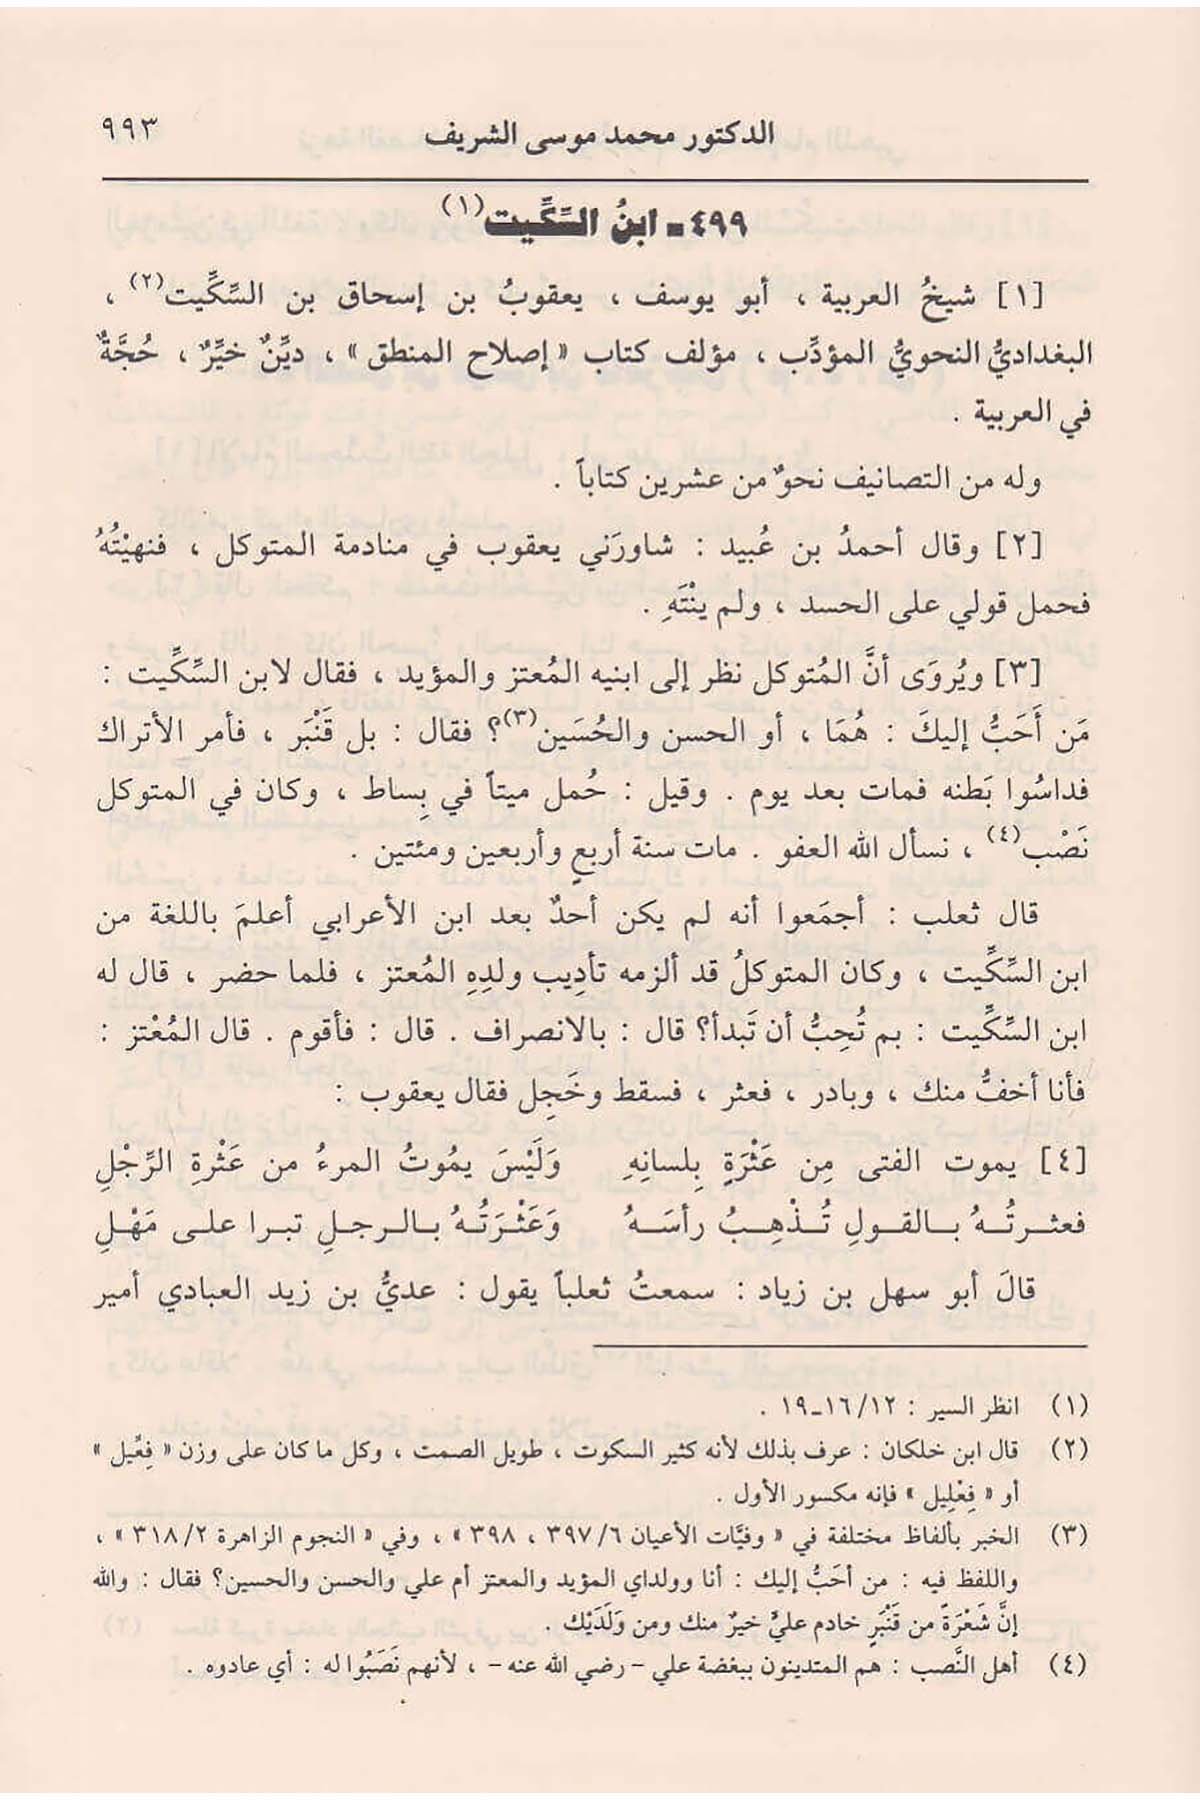 الدكتور محمد موسى الشريف ٩٩٣
٤٩٩ـ ابنُ السِّكِّيت(١)
[١] شيخُ العربية ، أبو يوسف ، يعقوبُ بن إسحاق بن السِّكِّيت(٢) ،
البغداديُّ النحويُّ المؤدِّب ، مؤلف كتاب « إصلاح المنطق » ، ديِّنٌ خيِّرٌ ، حُجَّةٌ
في العربية .
وله من التصانيف نحوٌ من عشرين كتاباً .
[٢] وقال أحمدُ بن عُبيد : شاورَني يعقوب في منادمة المتوكل ، فنهيْتُهُ
فحمل قولي على الحسد ، ولم ينْتَهِ .
[٣] ويُروَى أنَّ المُتوكل نظر إلى ابنيه المُعتز والمؤيد ، فقال لابن السِّكِّيت :
مَن أَحَبُّ إليكَ : هُمَا ، أو الحسن والحُسَين(٣)؟ فقال : بل قَنْبَر ، فأمر الأتراك
فداسُوا بَطنه فمات بعد يوم . وقيل : حُمل ميتاً في بِساط ، وكان في المتوكل
نَصْب(٤) ، نسأل الله العفو . مات سنة أربعٍ وأربعين ومئتين .
قال ثعلب : أجمَعوا أنه لم يكن أحدٌ بعد ابن الأعرابي أعلمَ باللغة من
ابن السِّكِّيت ، وكان المتوكلُ قد ألزمه تأدِيب ولدِهِ المُعتز ، فلما حضر ، قال له
ابن السِّكِّيت : بم تُحِبُّ أن تَبدأ؟ قال : بالانصراف . قال : فأقوم . قال المُعْتز :
فأنا أخفُّ منك ، وبادر ، فعثر ، فسقط وخَجِل فقال يعقوب :
[٤] يموت الفتى مِن عَثْرَةٍ بِلسانِهِ وَلَيْسَ يمُوتُ المرءُ من عَثْرةِ الرِّجْلِ
فعثرتُهُ بالقولِ تُذْهِبُ رأسَهُ وَعَثْرَتُهُ بالرجلِ تبرا على مَهْلِ
قالَ أبو سهل بن زياد : سمعتُ ثعلباً يقول : عديُّ بن زيد العبادي أمير
(١) انظر السير : ١٦/١٢ـ١٩ .
(٢) قال ابن خلكان : عرف بذلك لأنه كثير السكوت ، طويل الصمت ، وكل ما كان على وزن « فِعِّيل »
أو « فِعْلِيل » فإنه مكسور الأول .
(٣) الخبر بألفاظ مختلفة في « وفيَّات الأعيان ٣٩٧/٦ ، ٣٩٨ » ، وفي « النجوم الزاهرة ٣١٨/٢ » ،
واللفظ فيه : من أحَبُّ إليك : أنا وولداي المؤيد والمعتز أم علي والحسن والحسين؟ فقال : والله
إنَّ شَعْرَةً من قَنْبَرٍ خادم عليٍّ خيرٌ منك ومن وَلَدَيْك .
(٤) أهل النَّصب : هم المتدينون ببغضة علي - رضي الله عنه - ، لأنهم نَصَبُوا له : أي عادوه .